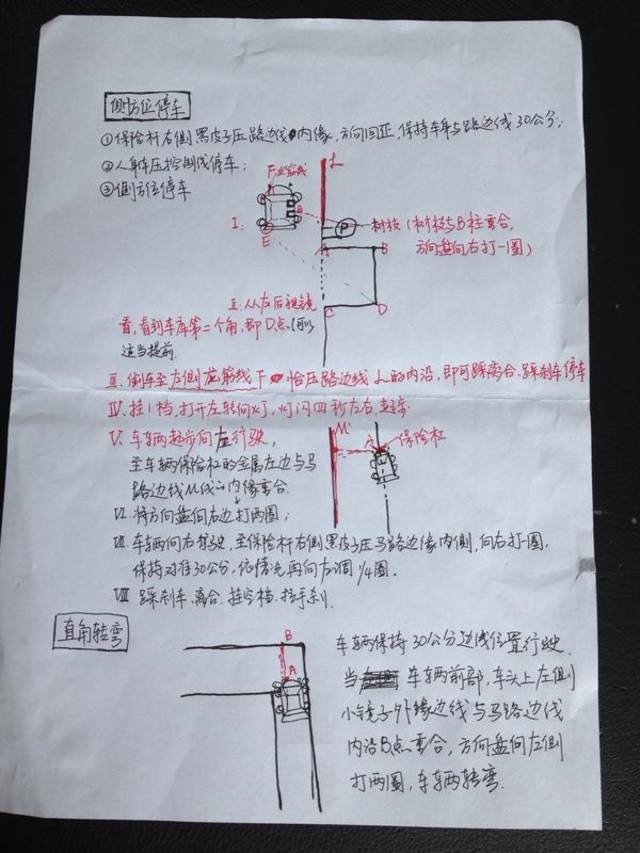 侧方位停车
①保险杆右侧黑皮子压路边线内缘,方向回正,保持车身与路边线30公分;
②人身体压控制线停车;
③侧方位停车
L
I:
E
P
树枝(树枝与B柱重合,
方向盘向右打一圈)
A
B
II:从左后视镜
看,看到车库第二个角,即D点,
适当提前.
C
D
III.倒车至左侧 筋线F恰压路边线L的内沿,即可踩离合.踩刹车停车
IV.挂1档,打开左转向灯,灯闪四秒左右,起步.
V.车辆起步向左行驶,
至车辆保险杠的金属左边与马
路边线M线的内缘重合.
M
保险杠
VI.将方向盘向右边打两圈;
VII.车辆向右驾驶,至保险杆右侧黑皮子压马路边缘内侧,向右打一圈,
保持对准30公分,依情况再向左调1/4圈.
VIII踩刹车.离合.挂空档.拉手刹.
直角转弯
B
A
车辆保持30公分边线位置行驶.
当 车辆前部,车头上左侧
小镜子外缘边线与马路边线
内沿B点重合,方向盘向左侧
打两圈,车辆转弯.